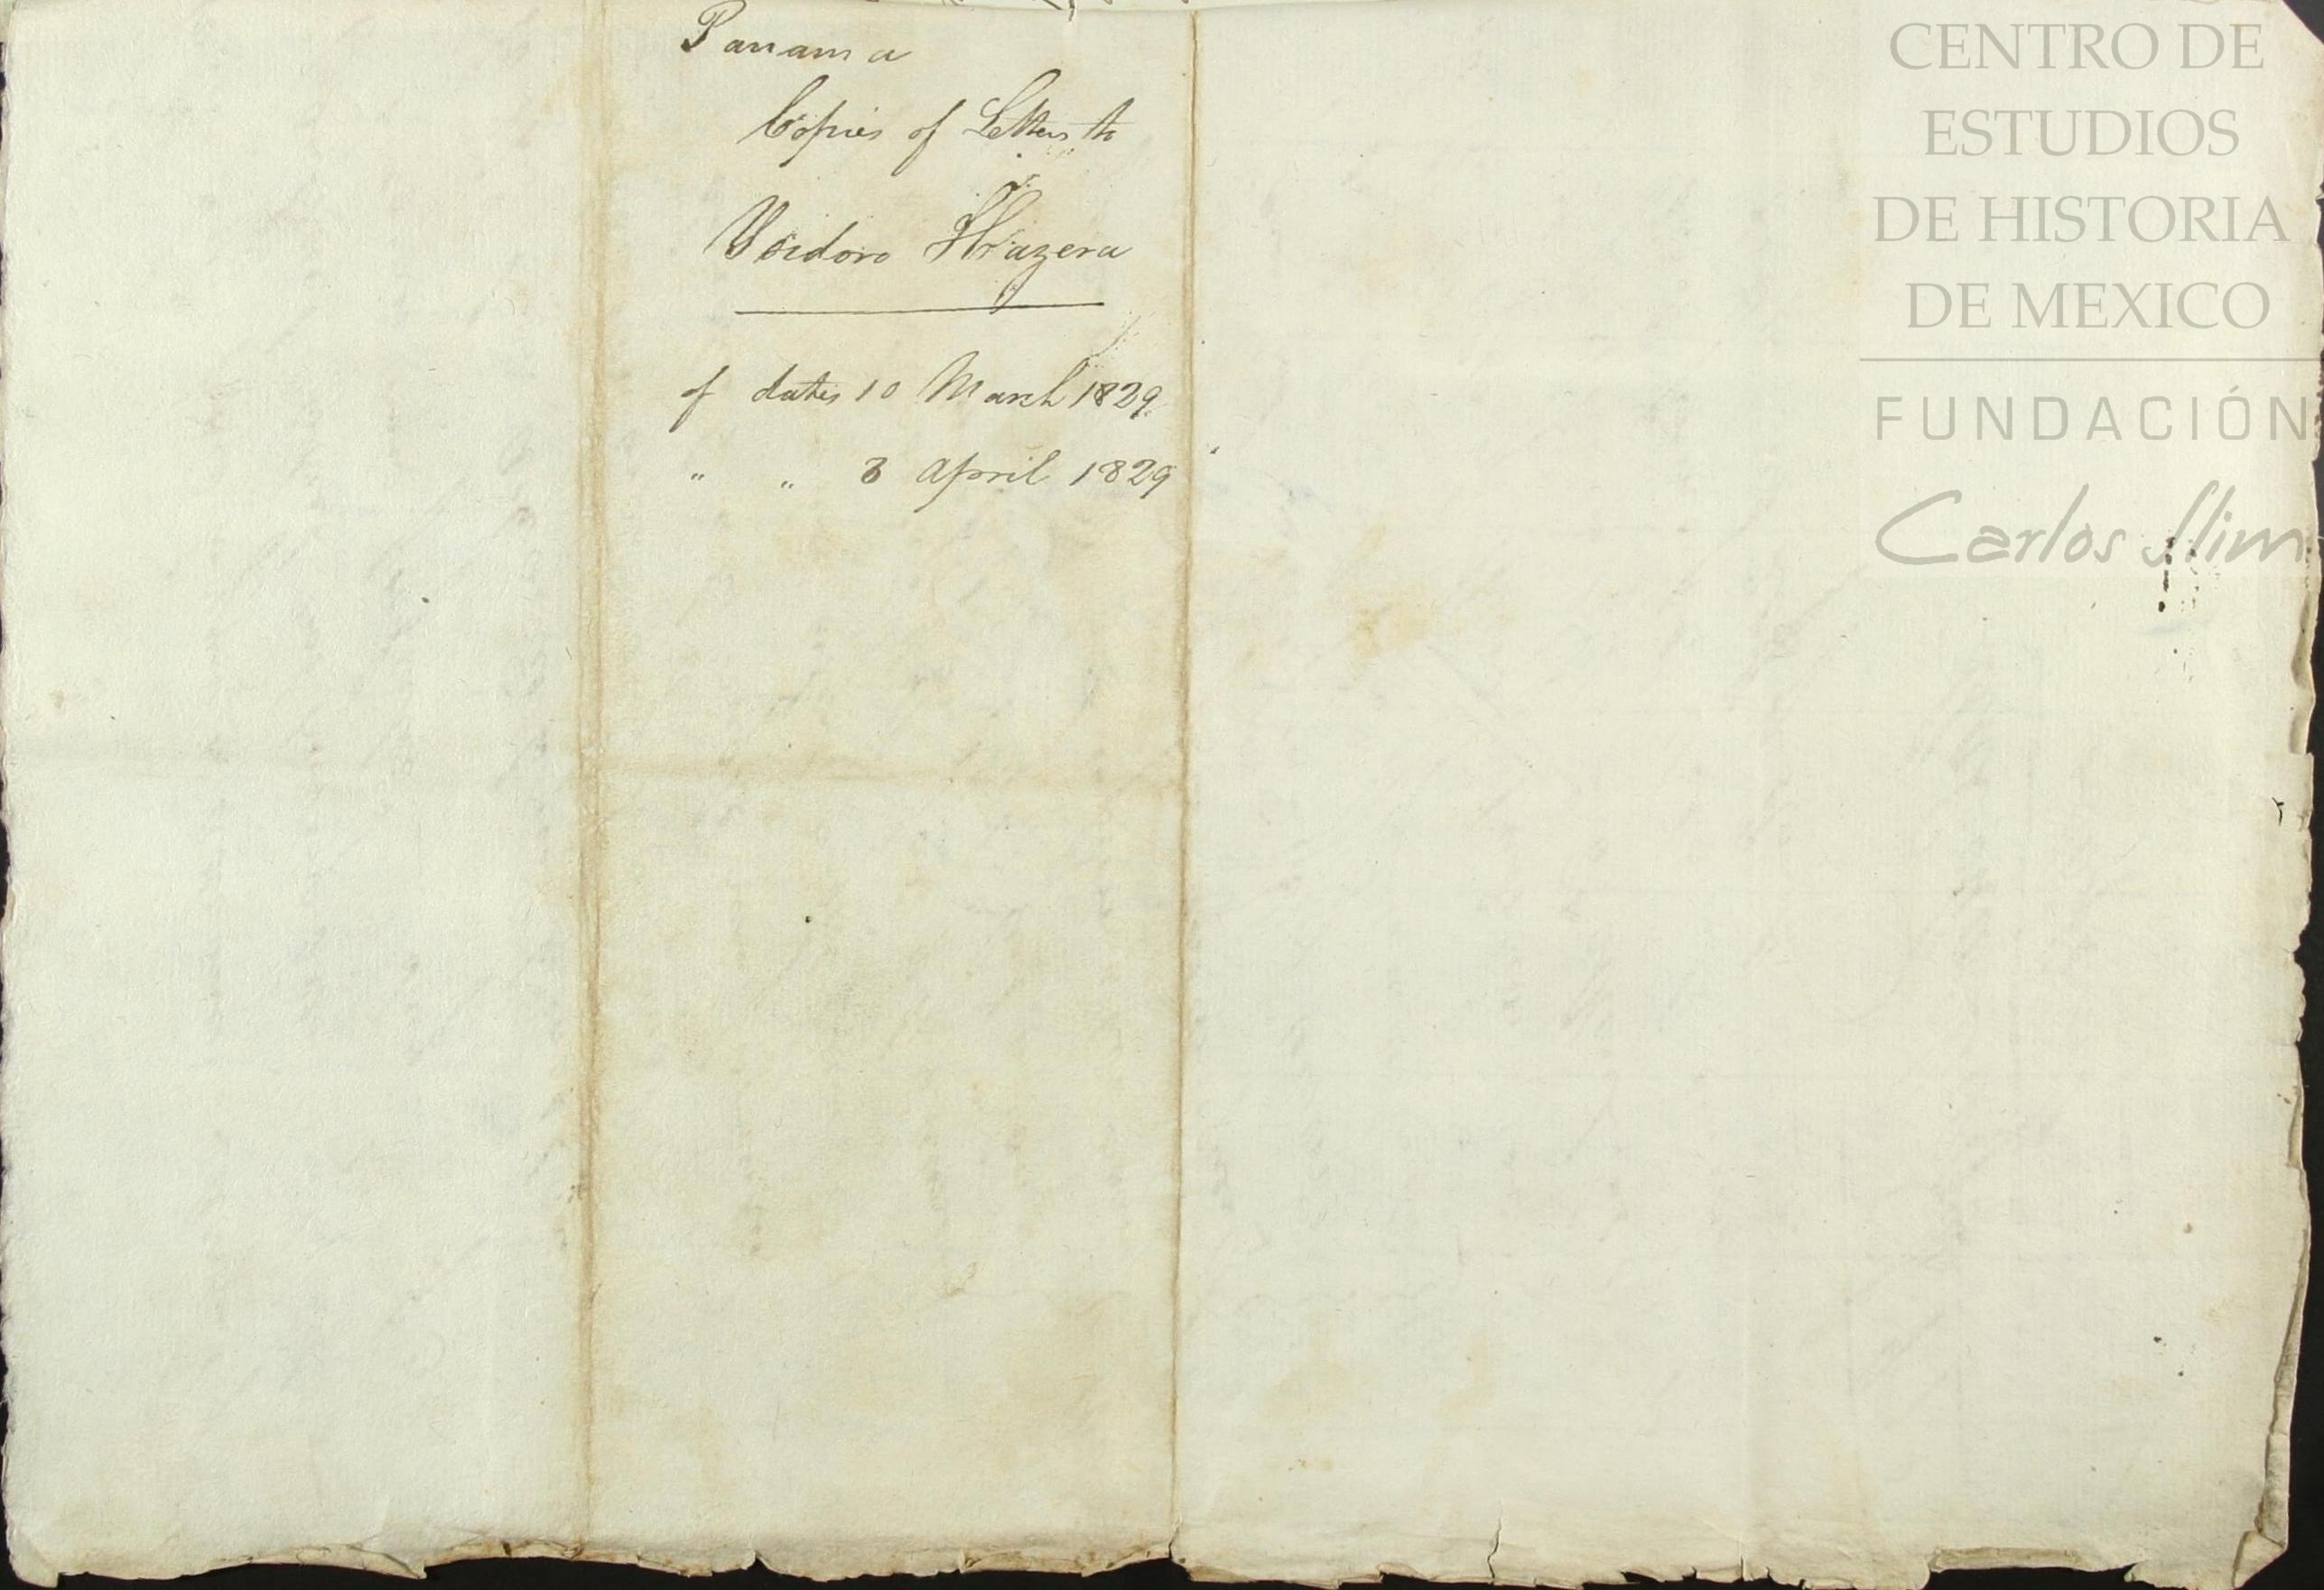 Panama
Copies of Letters to
Ysidoro
of dates 10 March 1829
" " 8 April 1829
CENTRO DE
ESTUDIOS
DE HISTORIA
DE MEXICO
FUNDACIÓN
Carlos Slim